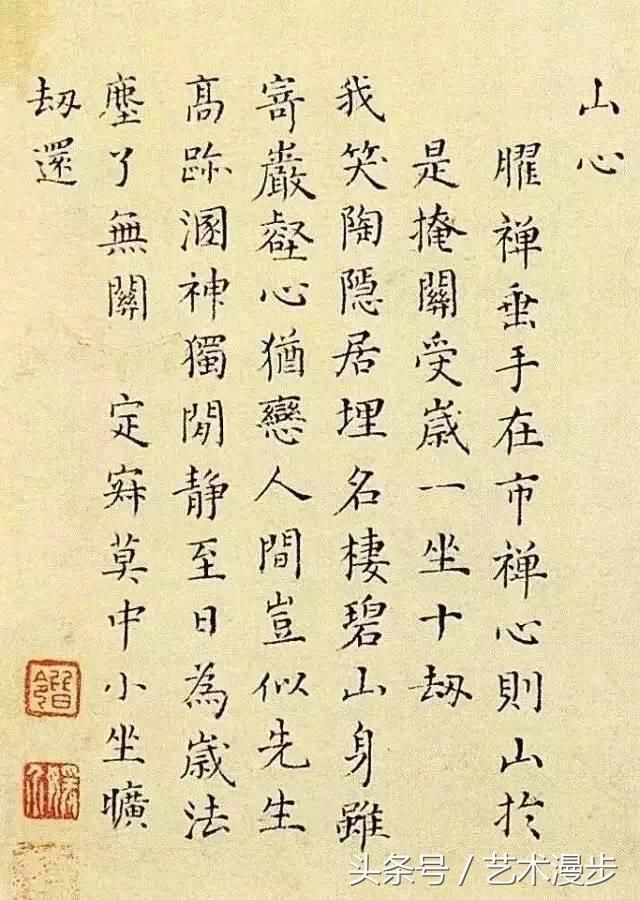 山心
臞禅垂手在市禅心則山於
是掩關受歲一坐十劫
我笑陶隱居埋名棲碧山身雖
寄巖壑心猶戀人間豈似先生
高跡溷神獨閒静至日為歲法
塵了無關 定寂莫中小坐曠
劫還
头条号 / 艺术漫步